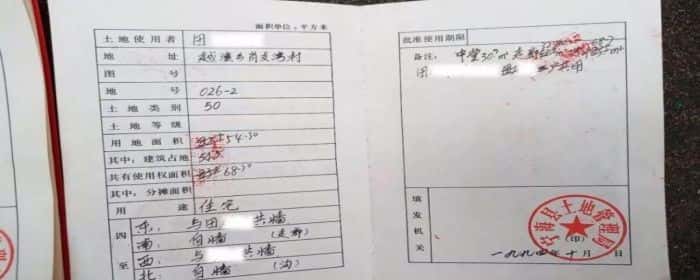 面积单位：平方米
土地使用者 田
地址 越溪乡肖支湾村
图号
地号 026-2
土地类别 50
土地等级
用地面积 54.30
其中：建筑占地
共有使用权面积 68.70
其中：分摊面积
用途 住宅
四至
东： 与田 共墙
南： 自墙（走廊）
西： 与 共墙
北： 自墙（沟）
批准使用期限
备注： 中堂30.70㎡ 走廊
田 三户共用
填发机关
宁海县土地管理局
（印）
一九九四年十月 日